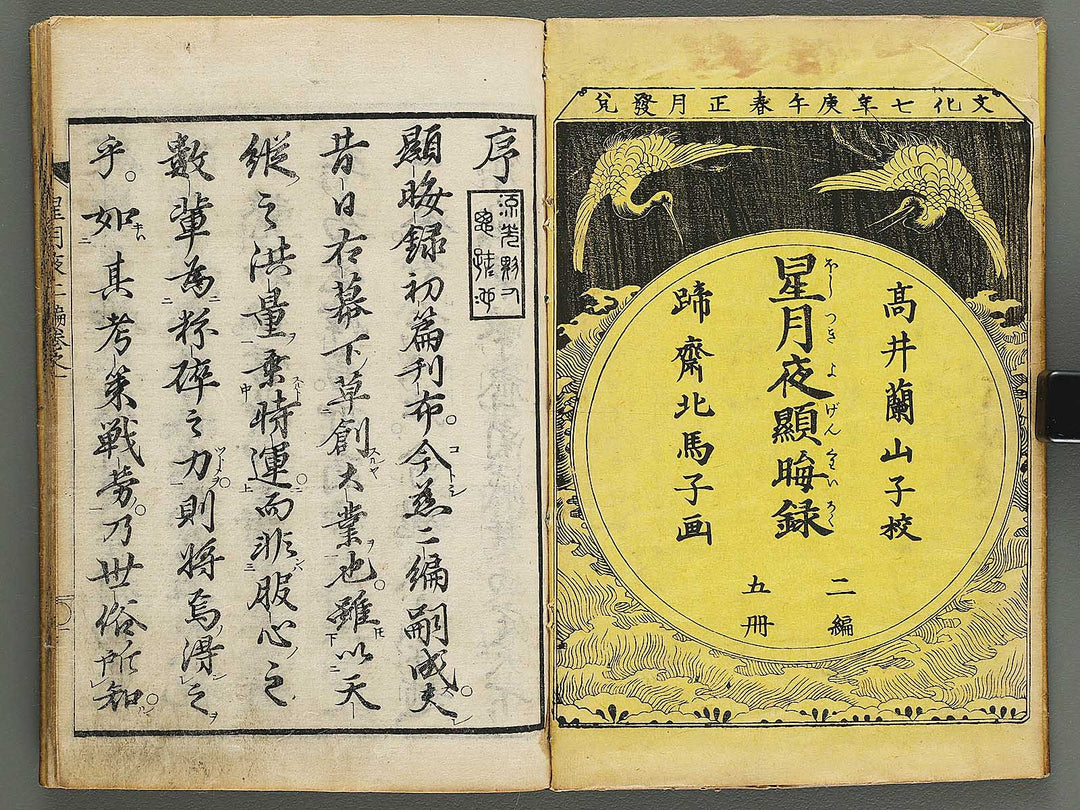 文化七年庚午春正月發兌
高井蘭山子校
星月夜顯晦録
ほしつきよげんくわいろく
蹄齋北馬子画
二編
五冊
序
顯晦録初篇刊布。今茲二編嗣成。夫
昔日右幕下草創大業也。雖以天
縦之洪量乗時運而非服心之
數輩為粉碎之力則將焉得之
乎。如其考策戦労。乃世俗所知。
星月夜二編巻之一